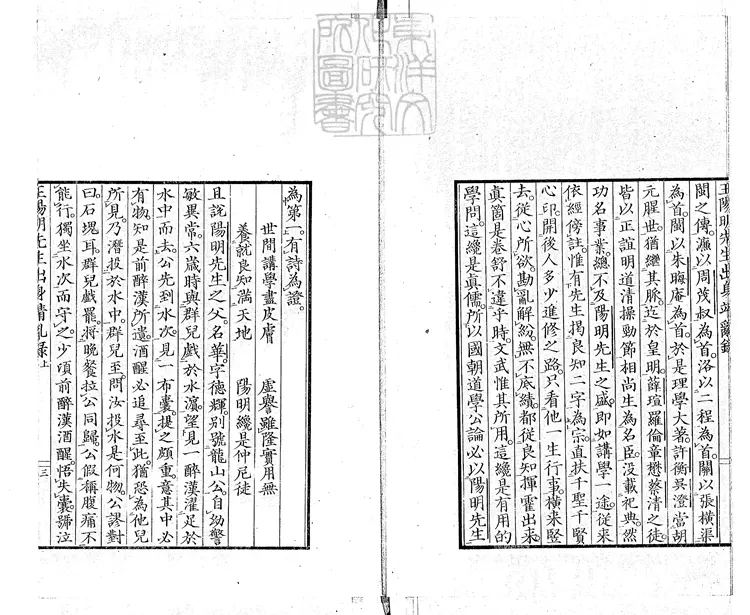 王陽明先生出身靖亂錄
閩之傳濂以周茂叔為首洛以二程為首關以張橫渠
為首閩以朱晦庵為首於是理學大著許衡吳澄當胡
元腥世猶繼其脈迄於皇明薛瑄羅倫章懋蔡清之徒
皆以正誼明道清操勁節相尚生為名臣沒載祀典然
功名事業總不及陽明先生之盛即如講學一途從來
依經傍註惟有先生揭良知二字為宗直扶千聖千賢
心印開後人多少進修之路只看他一生行事橫來豎
去從心所欲勘亂解紛無不底績都從良知揮霍出來
真箇是卷舒不違乎時文武惟其所用這纔是有用的
學問這纔是真儒所以國朝道學公論必以陽明先生
為第一有詩為證
世間講學盡皮膚 虛譽雖隆實用無
養就良知滿天地 陽明纔是仲尼徒
且說陽明先生之父名華字德輝別號龍山公自幼警
敏異常六歲時與群兒戲於水濱望見一醉漢濯足於
水中而去公先到水次見一布囊提之頗重意其中必
有物知是前醉漢所遺酒醒必追尋至此猶恐為他兒
所見乃潛投於水中群兒至問汝投水是何物公謬對
曰石塊耳群兒戲罷將晚餐拉公同歸公假稱腹痛不
能行獨坐水次而守之少頃前醉漢酒醒悟失囊號泣
王陽明先生出身靖亂錄 上
三
東洋文化研究所圖書